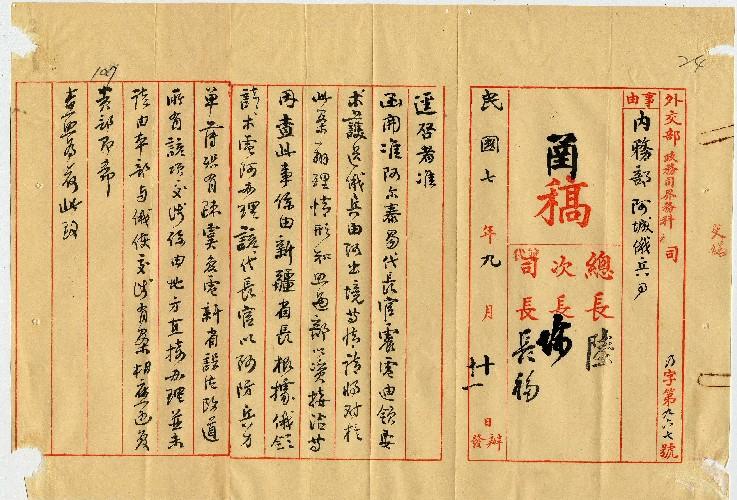 外交部 政務司界務科
司
乃字第九六七號
事由
內務部 阿城俄兵事
函
稿
總長 陸
次長
司長 長福
代
民國七年九月廿一日
辦
發
逕啓者准
函開准阿尔泰
代長官電
俄領
護送俄兵由阿出境等情請將對於
此案辦理情形知照過部以資接洽等
因查此事係由新疆省長根據俄領
請求電阿辦理該代長官以阿防兵力
單薄
電新省設法
所有該項交涉係由地方直接辦理並未
由本部與俄使交涉有案相應函復
貴部即希
查照為荷此致
24
107